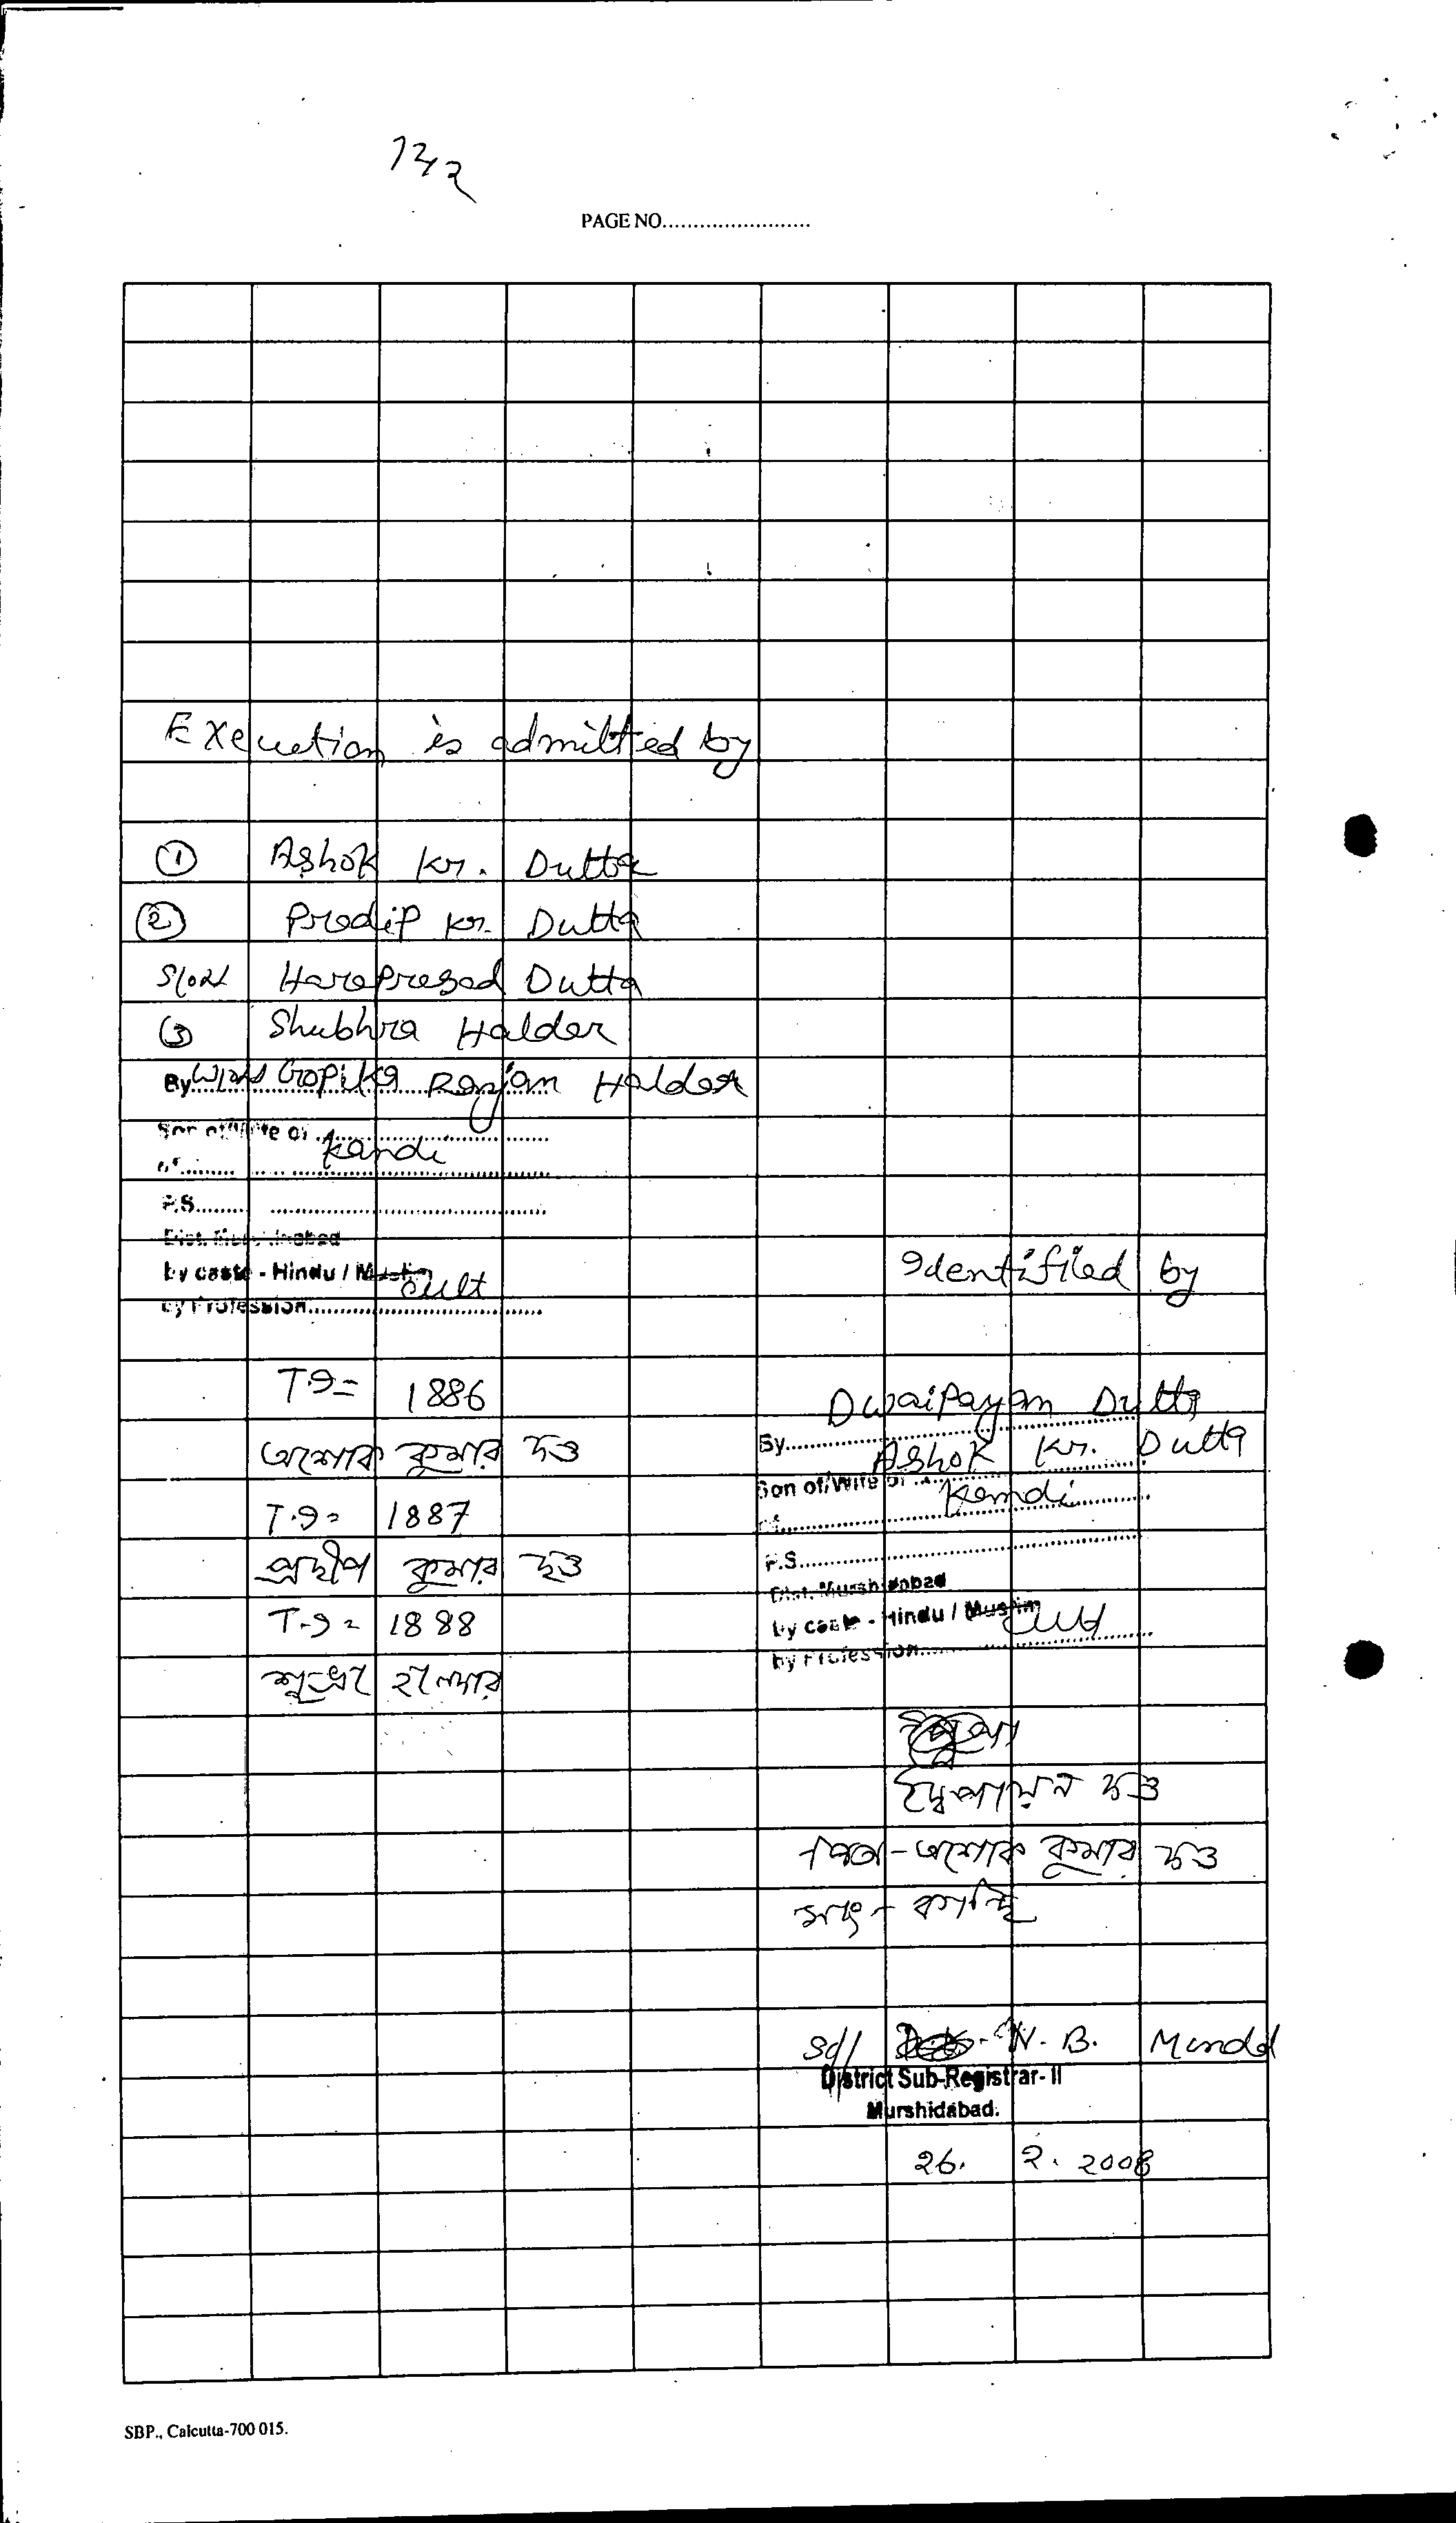 PAGE NO.........................
Execution is admitted by
① Ashok Kr. Dutta
② Prodip Kr. Dutta
S/o Haraprosad Dutta
③ Shubhra Halder
By W/o Gopika Ranjan Halder
Son of/Wife of
of Kandi
P.S.
Dist. Murshidabad
by caste - Hindu / Muslim
by Profession Cult
T.I = 1886
অশোক কুমার দত্ত
T.I = 1887
প্রদীপ কুমার দত্ত
T.I = 1888
শুভ্রা হালদার
Identified by
Dwaipayan Dutta
By
Ashok Kr. Dutta
Son of/Wife of
Kandi
of
P.S.
Dist. Murshidabad
by caste - Hindu / Muslim
by Profession Cult
দ্বৈপায়ন দত্ত
পিতা - অশোক কুমার দত্ত
সাং - কান্দি
Sd/ N. B. Mondal
District Sub-Registrar- II
Murshidabad.
26. 2. 2008
SBP., Calcutta-700 015.